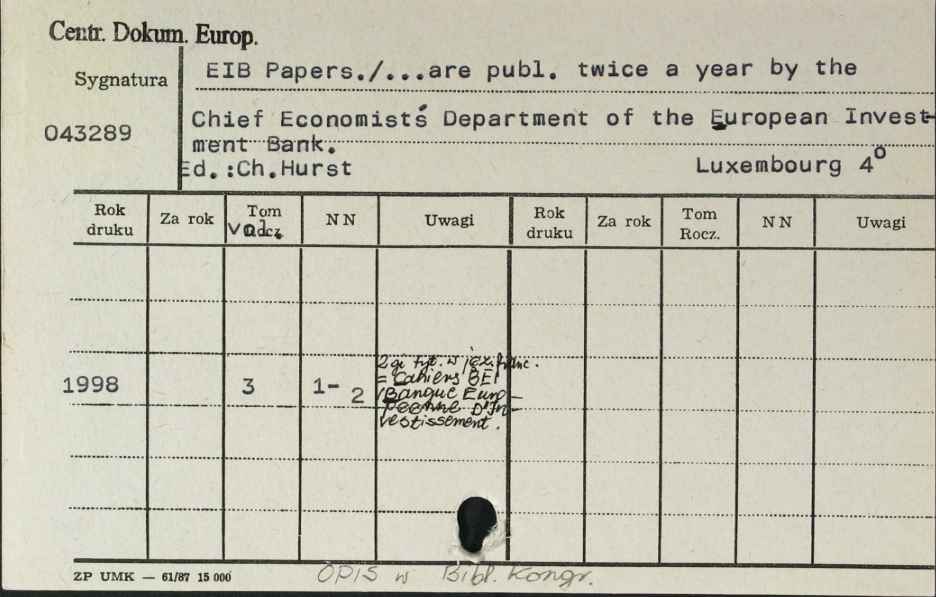 Centr. Dokum. Europ.
Sygnatura
EIB Papers./...are publ. twice a year by the
043289
Chief Economists´ Department of the European Invest-
ment Bank.
Ed.:Ch.Hurst Luxembourg 4°
Rok druku Za rok Tom Vol. NN Uwagi Rok druku Za rok Tom Rocz. NN Uwagi
1998 3 1-2
2gi tyt. w jęz. franc.
= Cahiers BEI
/Banque Euro-
peenne D'In-
vestissement.
ZP UMK — 61/87 15 000
OPIS w Bibl. Kongr.